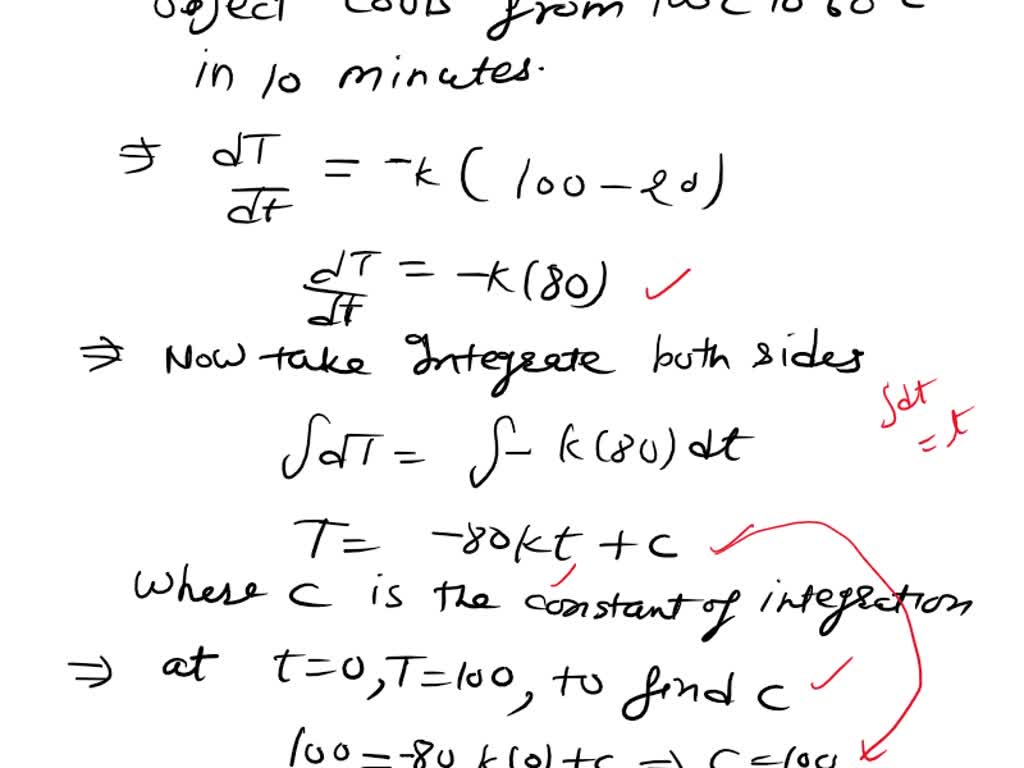 object cools from 100°C to 60°C
in 10 minutes.
⇒ dT/dt = -k (100 - 20)
dT/dt = -k(80) ✓
⇒ Now take Integrate both sides
∫dt
= t
∫dT = ∫- k(80) dt
T = -80kt + c
where c is the constant of integration
⇒ at t=0, T=100, to find c ✓
100 = -80 k(0) + c ⇒ c = 100